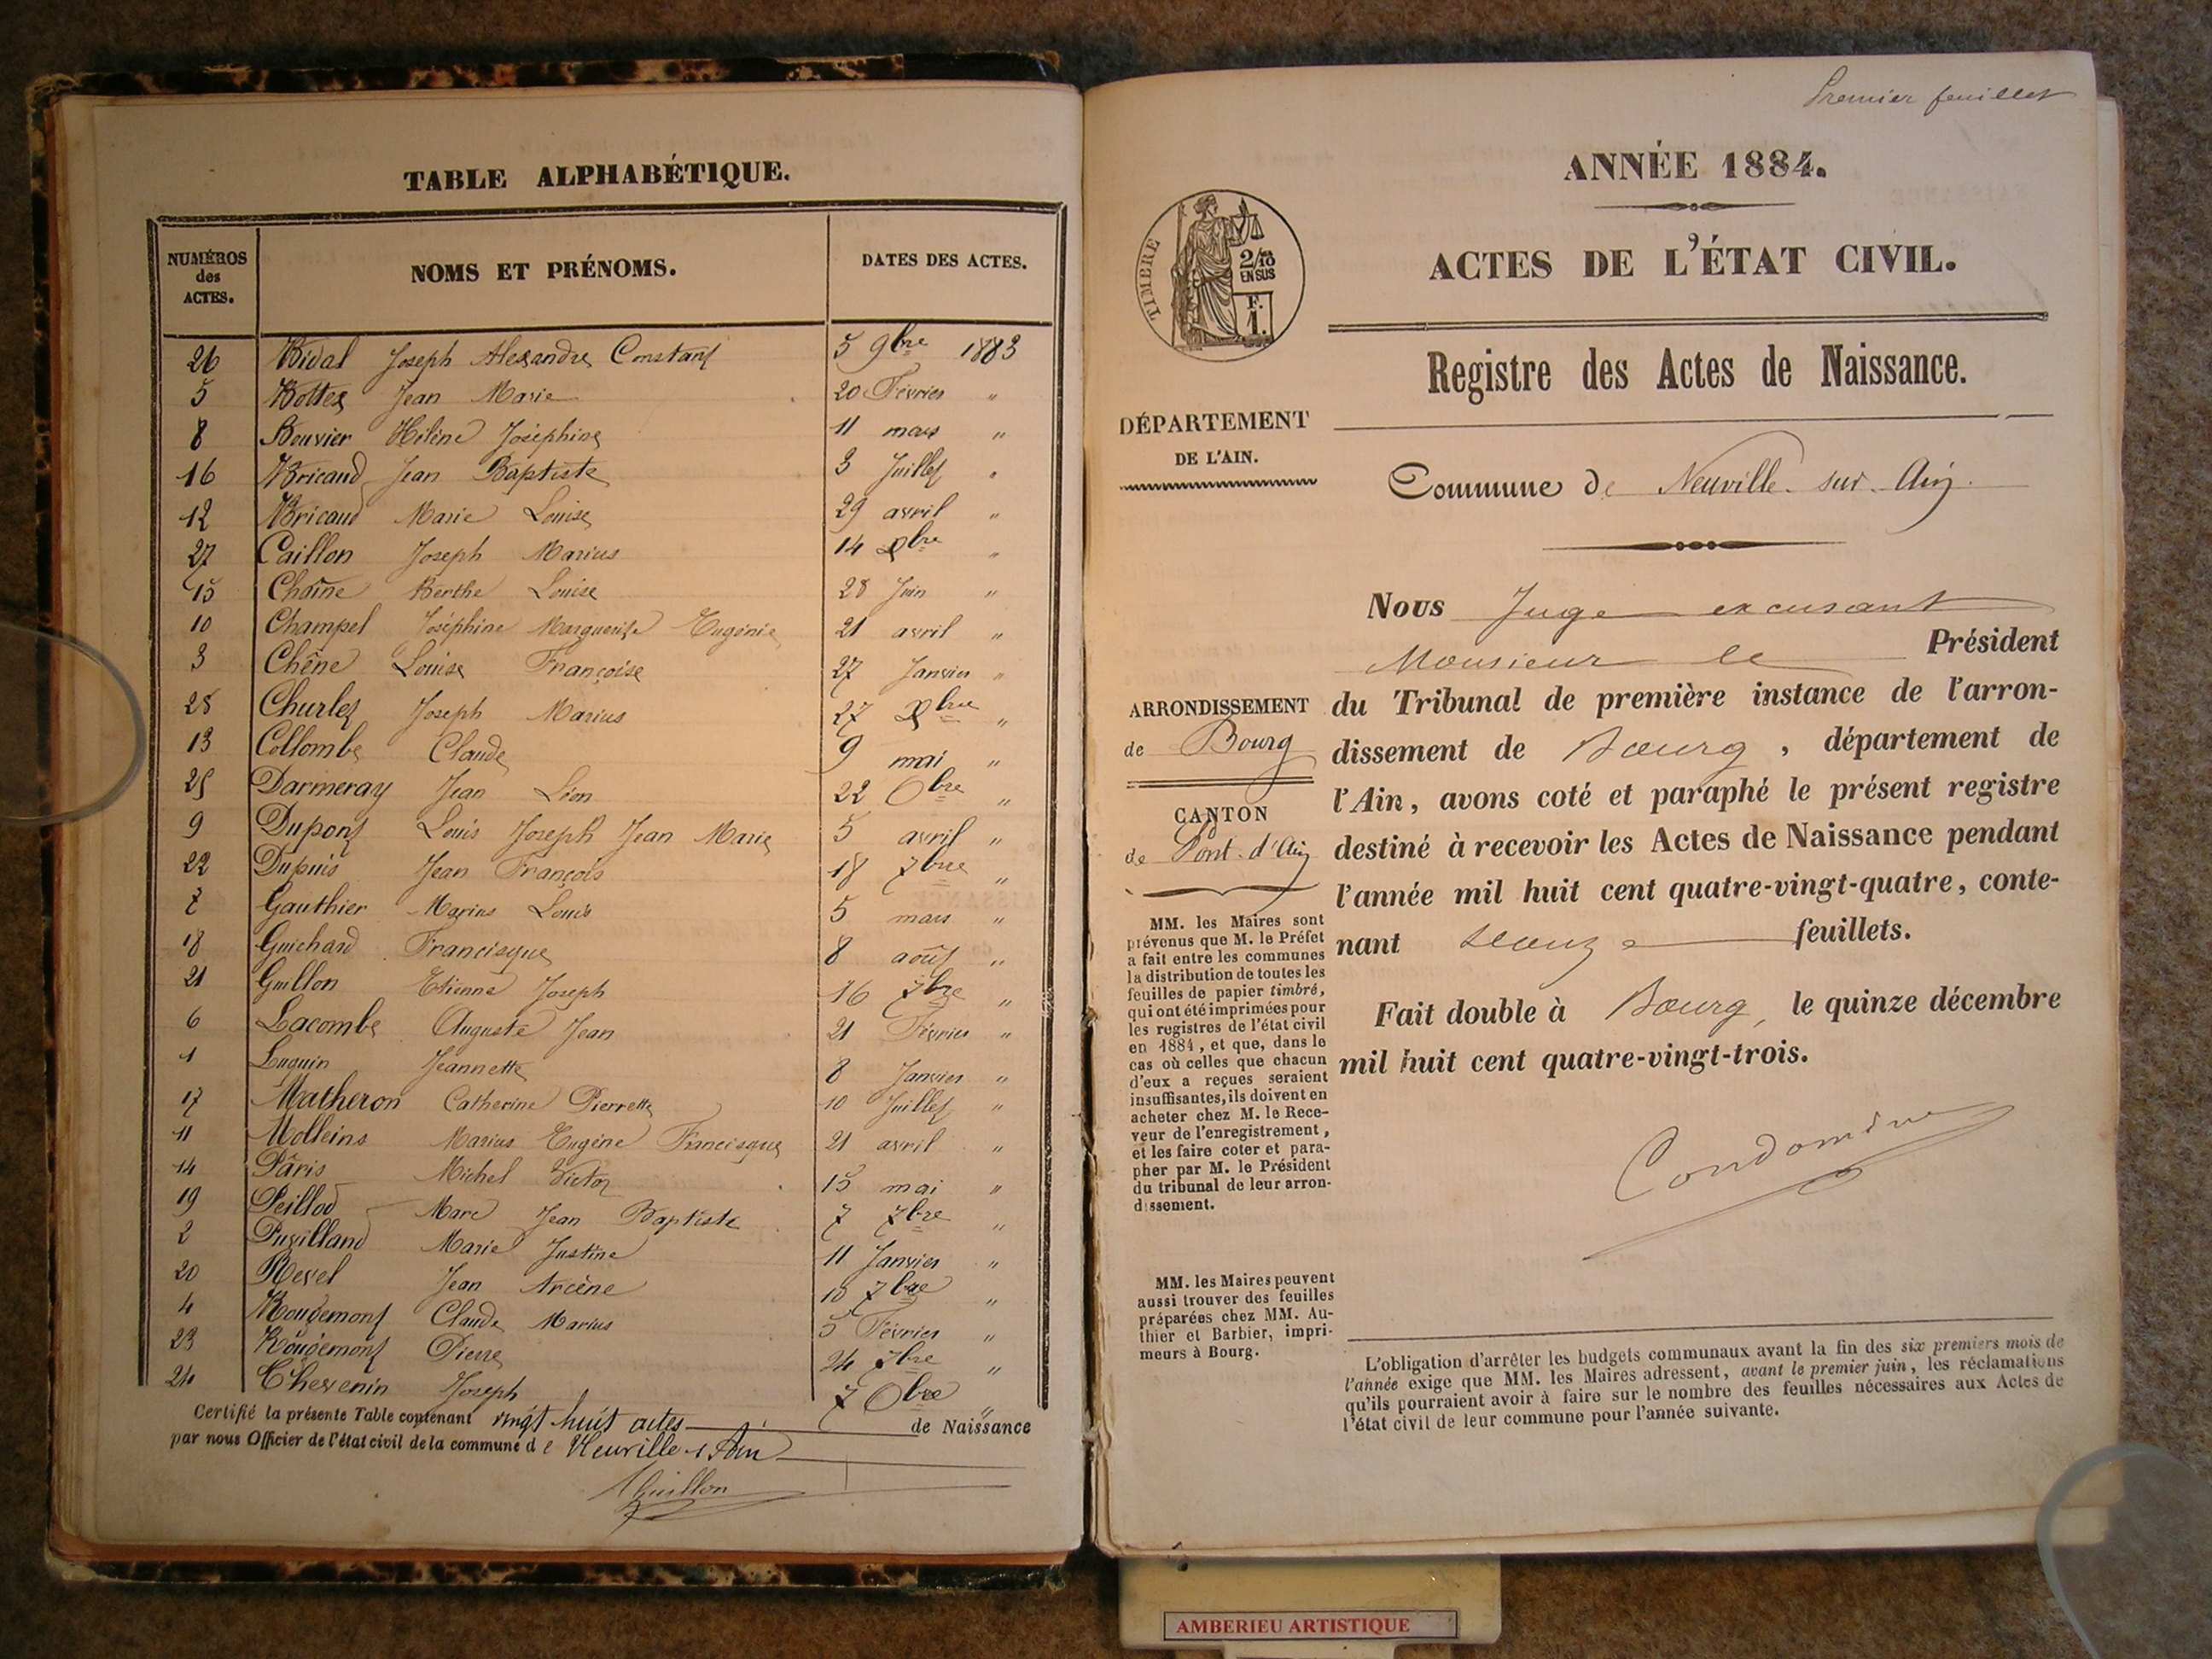 TABLE ALPHABÉTIQUE.
NUMÉROS des ACTES.
NOMS ET PRÉNOMS.
DATES DES ACTES.
26 Bidal Joseph Alexandre Constant 5 9bre 1883
5 Bottex Jean Marie 20 Février "
8 Bouvier Hélène Joséphine 11 mars "
16 Bricaud Jean Baptiste 3 Juillet "
12 Bricaud Marie Louise 29 avril "
27 Caillon Joseph Marius 14 Xbre "
15 Chaîne Berthe Louise 28 Juin "
10 Champel Joséphine Marguerite Eugénie 21 avril "
3 Chêne Louise Françoise 27 Janvier "
28 Churlet Joseph Marius 27 Xbre "
13 Collombe Claude 9 mai "
25 Darmeray Jean Léon 22 8bre "
9 Dupont Louis Joseph Jean Marie 5 avril "
22 Dupuis Jean François 18 7bre "
7 Gauthier Marius Louis 5 mars "
18 Guichard Francisque 8 août "
21 Guillon Etienne Joseph 16 7bre "
6 Lacombe Auguste Jean 21 Février "
1 Luquin Jeannette 8 Janvier "
17 Matheron Catherine Pierrette 10 Juillet "
11 Molleins Marius Eugène Francisque 21 avril "
14 Pâris Michel Victor 15 mai "
19 Peillod Marc Jean Baptiste 7 7bre "
2 Puvilland Marie Justine 11 Janvier "
20 Revel Jean Arcène 10 7bre "
4 Rougemont Claude Marius 5 Février "
23 Rougemont Pierre 24 7bre "
24 Thevenin Joseph 7 8bre "
Certifié la présente Table contenant vingt huit actes de Naissance
par nous Officier de l'état civil de la commune de Neuville s/ Ain
Guillon
Premier feuillet
ANNÉE 1884.
TIMBRE
2/10 EN SUS
F. 1.
ACTES DE L'ÉTAT CIVIL.
Registre des Actes de Naissance.
DÉPARTEMENT
DE L'AIN.
Commune de Neuville sur Ain.
Nous Juge excusant
Monsieur le Président
ARRONDISSEMENT
de Bourg
du Tribunal de première instance de l'arron-
dissement de Bourg, département de
l'Ain, avons coté et paraphé le présent registre
destiné à recevoir les Actes de Naissance pendant
l'année mil huit cent quatre-vingt-quatre, conte-
nant feuillets.
CANTON
de Pont-d'Ain
Fait double à Bourg, le quinze décembre
mil huit cent quatre-vingt-trois.
Condomine
MM. les Maires sont
prévenus que M. le Préfet
a fait entre les communes
la distribution de toutes les
feuilles de papier timbré,
qui ont été imprimées pour
les registres de l'état civil
en 1884, et que, dans le
cas où celles que chacun
d'eux a reçues seraient
insuffisantes, ils doivent en
acheter chez M. le Rece-
veur de l'enregistrement,
et les faire coter et para-
pher par M. le Président
du tribunal de leur arron-
dissement.
MM. les Maires peuvent
aussi trouver des feuilles
préparées chez MM. Au-
thier et Barbier, impri-
meurs à Bourg.
L'obligation d'arrêter les budgets communaux avant la fin des six premiers mois de
l'année exige que MM. les Maires adressent, avant le premier juin, les réclamations
qu'ils pourraient avoir à faire sur le nombre des feuilles nécessaires aux Actes de
l'état civil de leur commune pour l'année suivante.
AMBERIEU ARTISTIQUE